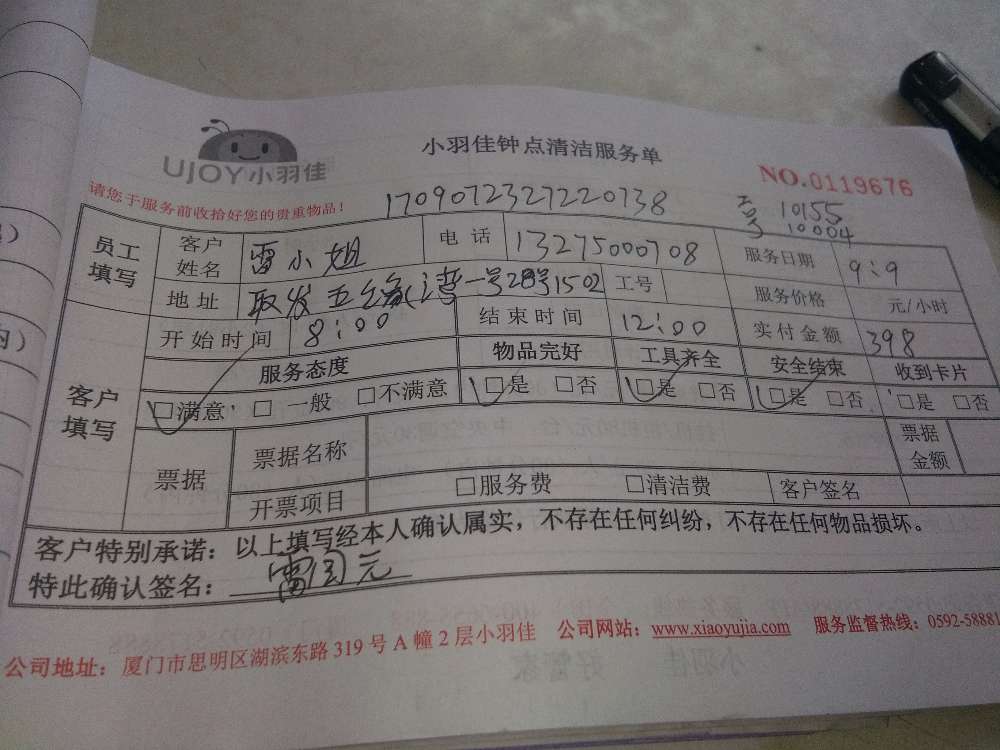 UJOY小羽佳
小羽佳钟点清洁服务单
NO.0119676
请您于服务前收拾好您的贵重物品！
1709072327220738
工号 10155
10004
员工填写 客户姓名 雷小姐 电话 13275000708 服务日期 9:9
地址 五缘湾一号28号1502 工号 服务价格 元/小时
客户填写 开始时间 8:00 结束时间 12:00 实付金额 398
服务态度 物品完好 工具齐全 安全结束 收到卡片
□满意 □一般 □不满意 □是 □否 □是 □否 □是 □否 □是 □否
票据 票据名称 票据金额
开票项目 □服务费 □清洁费 客户签名
客户特别承诺：以上填写经本人确认属实，不存在任何纠纷，不存在任何物品损坏。
特此确认签名：
公司地址：厦门市思明区湖滨东路319号A幢2层小羽佳 公司网站：www.xiaoyujia.com 服务监督热线：0592-58881